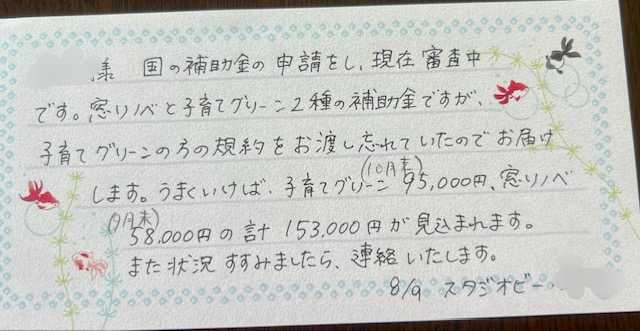 様 国の補助金の申請をし、現在審査中
です。窓リノベと子育てグリーン2種の補助金ですが、
子育てグリーンの方の規約をお渡し忘れていたのでお届け
します。うまくいけば、子育てグリーン(10月末)95,000円、窓リノベ
(9月末)58,000円の計 153,000円が見込まれます。
また状況すすみましたら、連絡いたします。
8/9 スタジオビー